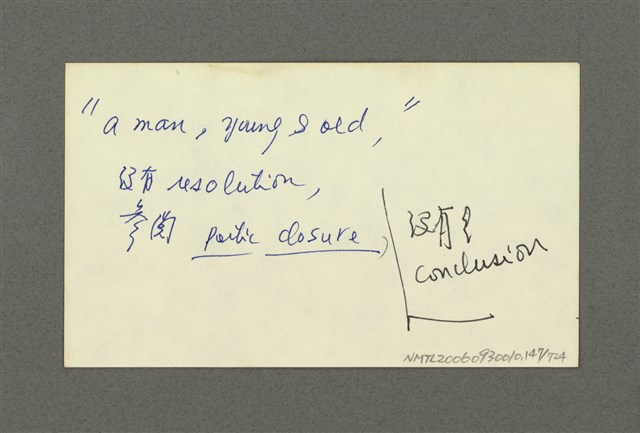 "a man, young & old,"
沒有 resolution,
參閱 poetic closure,
沒有
conclusion
NMTL20060930010.147/724